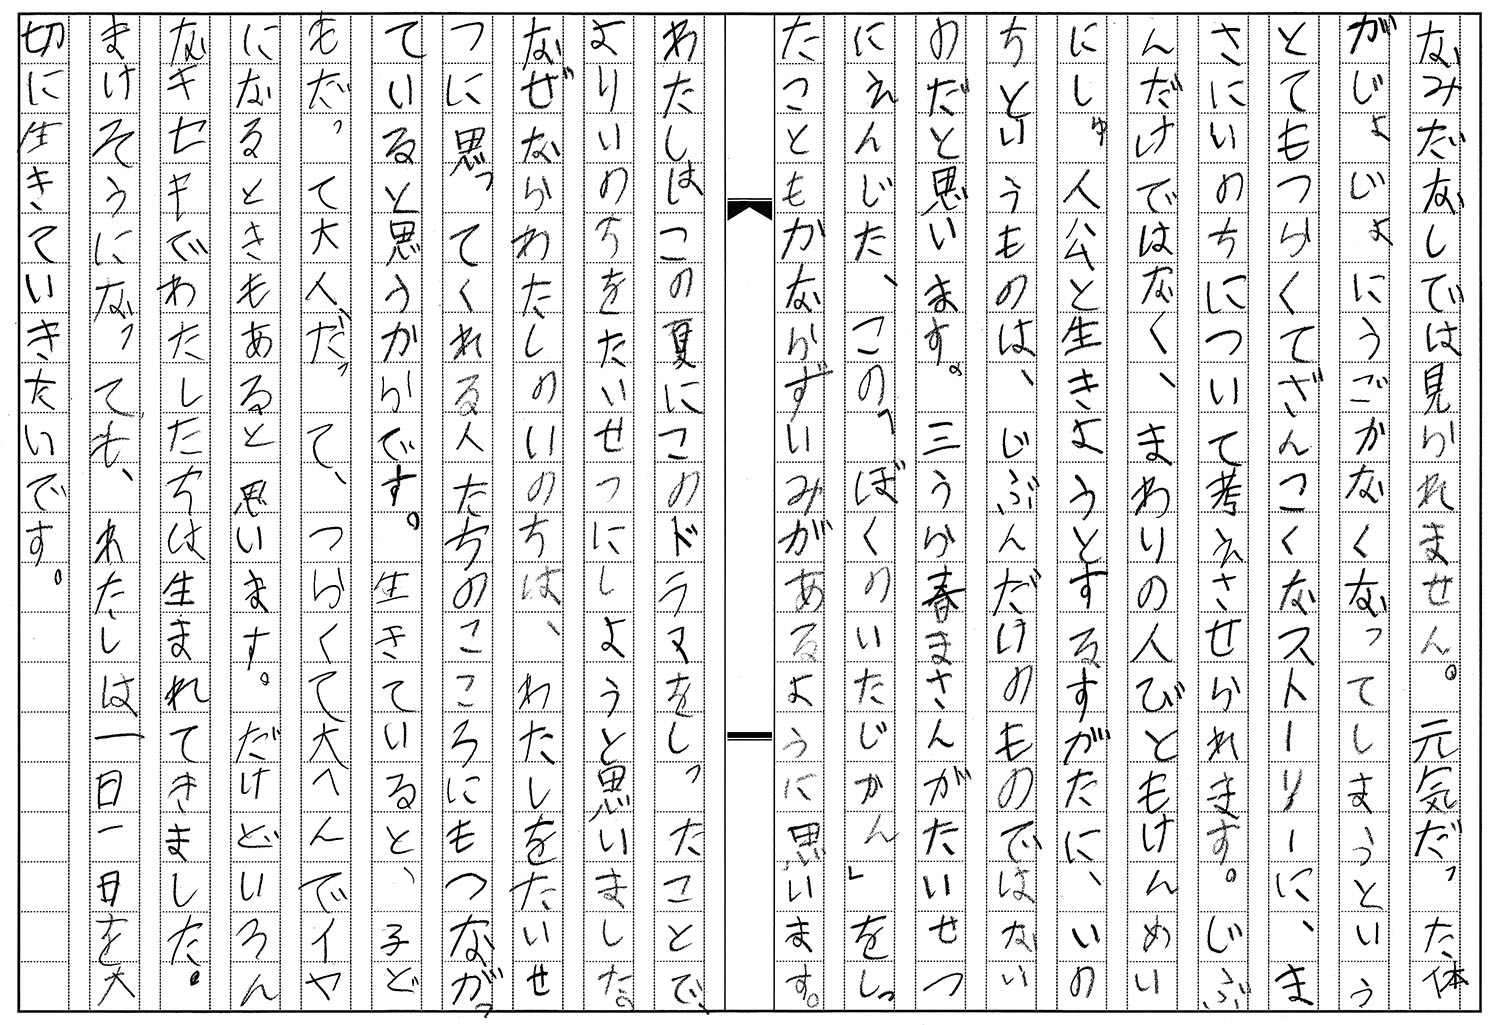 なみだなしでは見られません。元気だった体
がじょじょにうごかなくなってしまうという
とてもつらくてざんこくなストーリーに、ま
さにいのちについて考えさせられます。じぶ
んだけではなく、まわりの人びともけんめい
にしゅ人公と生きようとするすがたに、いの
ちというものは、じぶんだけのものではない
のだと思います。三うら春まさんがたいせつ
にえんじた、この「ぼくのいたじかん」をしっ
たこともかならずいみがあるように思います。
わたしはこの夏にこのドラマをしったことで、
よりいのちをたいせつにしようと思いました。
なぜならわたしのいのちは、わたしをたいせ
つに思ってくれる人たちのこころにもつながっ
ていると思うからです。生きていると、子ど
もだって大人だって、つらくて大へんでイヤ
になるときもあると思います。だけどいろん
なキセキでわたしたちは生まれてきました。
まけそうになっても、わたしは一日一日を大
切に生きていきたいです。